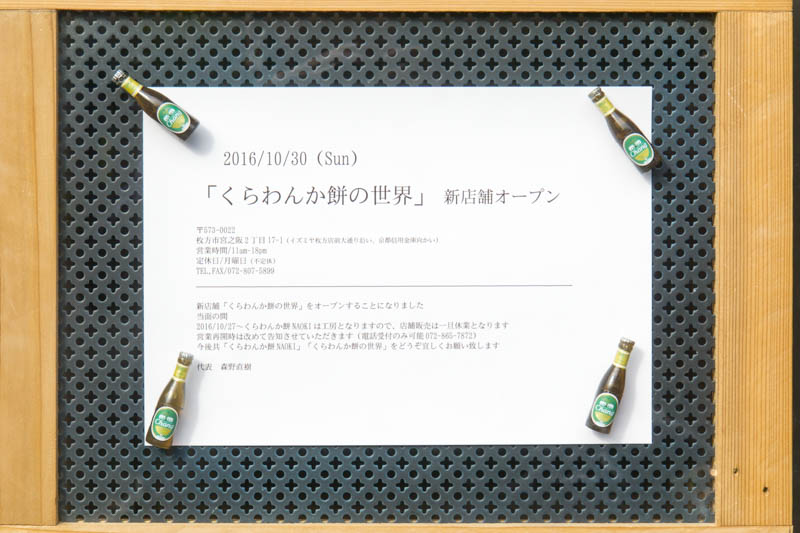 2016/10/30 (Sun)
「くらわんか餅の世界」 新店舗オープン
〒573-0022
枚方市宮之阪２丁目17-1（イズミヤ枚方店前大通り沿い、京都信用金庫向かい）
営業時間/11am-18pm
定休日/月曜日（不定休）
TEL,FAX/072-807-5899
新店舗「くらわんか餅の世界」をオープンすることになりました
当面の間
2016/10/27～くらわんか餅NAOKIは工房となりますので、店舗販売は一旦休業となります
営業再開時は改めて告知させていただきます（電話受付のみ可能072-865-7872）
今後共「くらわんか餅NAOKI」「くらわんか餅の世界」をどうぞ宜しくお願い致します
代表　森野直樹
Chang
Chang
Chang
Chang